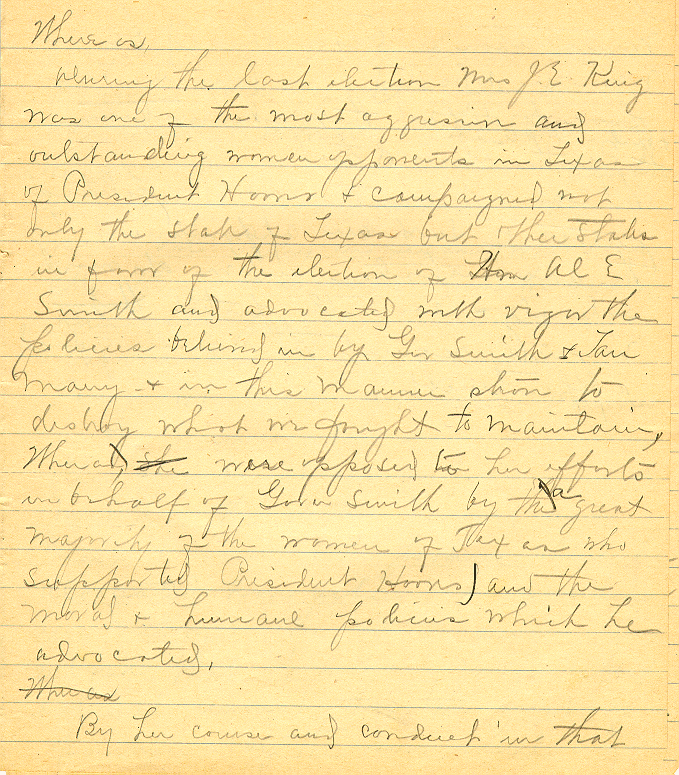 Where as,
During the last election Mrs J. E. King
was one of the most aggressive and
outstanding women opponents in Texas
of President Hoover & campaigned not
only the state of Texas but other States
in favor of the election of Hon Al E
Smith and advocated with vigor the
policies believed in by Gov Smith & Tam
many & in this manner strove to
destroy what we fought to maintain,
Whereas, she were opposed to her efforts
in behalf of Gover Smith by the a great
majority of the women of Texas who
supported President Hoover) and the
moral & humane policies which he
advocated,
Whereas
By her course and conduct in that